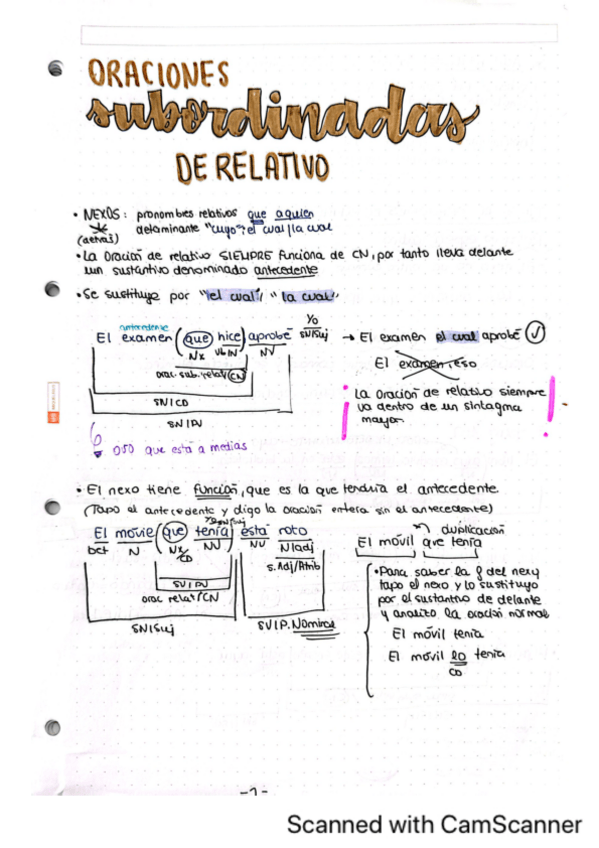 ORACIONES
subordinadas
DE RELATIVO
• NEXOS: pronombres relativos que a quien
(detrás) determinante "cuyo"; el cual/la cual
• La oración de relativo SIEMPRE funciona de CN, por tanto lleva delante
un sustantivo denominado antecedente
• Se sustituye por "el cual" / "la cual"
antecedente
Yo
SN/Suj
El examen (que hice) aprobé
Nx Vb/N NV
orac. sub. relat/CN
SN/CD
→ El examen el cual aprobé ✓
El examen, eso
SN/PV
La oración de relativo siempre
va dentro de un sintagma
mayor.
OJO que está a medias
• El nexo tiene función, que es la que tendría el antecedente.
(Tapo el antecedente y digo la oración entera sin el antecedente)
El móvil (que tenía) está roto
Det N Nx NV NV N/adj
CD
S.Adj/Atrib
SV/PV
orac relat/CN
SN/Suj
SV/P.Nominal
duplicación
El móvil que tenía
• Para saber la f del nexo
tapo el nexo y lo sustituyo
por el sustantivo de delante
y analizo la oración normal
El móvil tenía
El móvil lo tenía
CD
-1-
Scanned with CamScanner